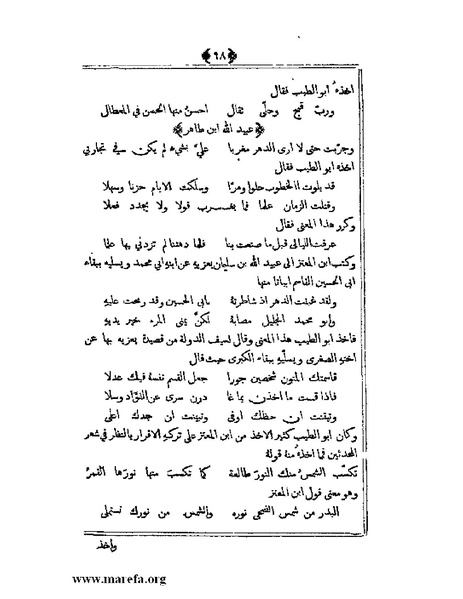 ﴿ ٦٨ ﴾
اخذهُ ابو الطيب فقال
وربّ قبحٍ وحلًى ثقال احسن منها الحسن في المعطال
﴿ عبيد الله ابن طاهر ﴾
وجربت حتى لا ارى الدهر مغربا عليَّ بشيءٍ لم يكن في تجاربي
اخذه ابو الطيب فقال
قد بلوت الخطوب حلوا ومرًّا وسلكت الايام حزنا وسهلا
وقتلت الزمان علما فما يغرب قولا ولا يجدد فعلا
وكرر هذا المعنى فقال
عرفت الليالي قبل ما صنعت بنا فلما دهتنا لم تزدني بها علما
وكتب ابن المعتز الى عبيد الله بن سليمان يعزيه عن ابنه ابي محمد ويسليه ببقاء
ابي الحسين القاسم ابياتا منها
ولقد غبنت الدهر اذ شاطرته بابي الحسين وقد ربحت عليه
وابو محمد الجليل مصابه لكنَّ يمنى المرء خير يديه
فاخذ ابو الطيب هذا المعنى وقال لسيف الدولة من قصيدة يعزيه بها عن
اخته الصغرى ويسلّيه ببقاء الكبرى حيث قال
قاسمتك المنون شخصين جورا جعل القسم نفسه فيك عدلا
فاذا قست ما اخذن بما غا درن سرى عن الفؤاد وسلا
وتيقنت ان حظك اوفى وتبينت ان جدك اعلى
وكان ابو الطيب كثير الاخذ من ابن المعتز على تركهِ الاقرار بالنظر في شعر
المحدثين فما اخذهُ منهُ قولهُ
تكسّب الشمسُ منك النورَ طالعة كما تكسبَ منها نورَها القمرُ
وهو معنى قول ابن المعتز
البدر من شمس الضحى نوره والشمس من نورك تستملى
واخذ
www.marefa.org